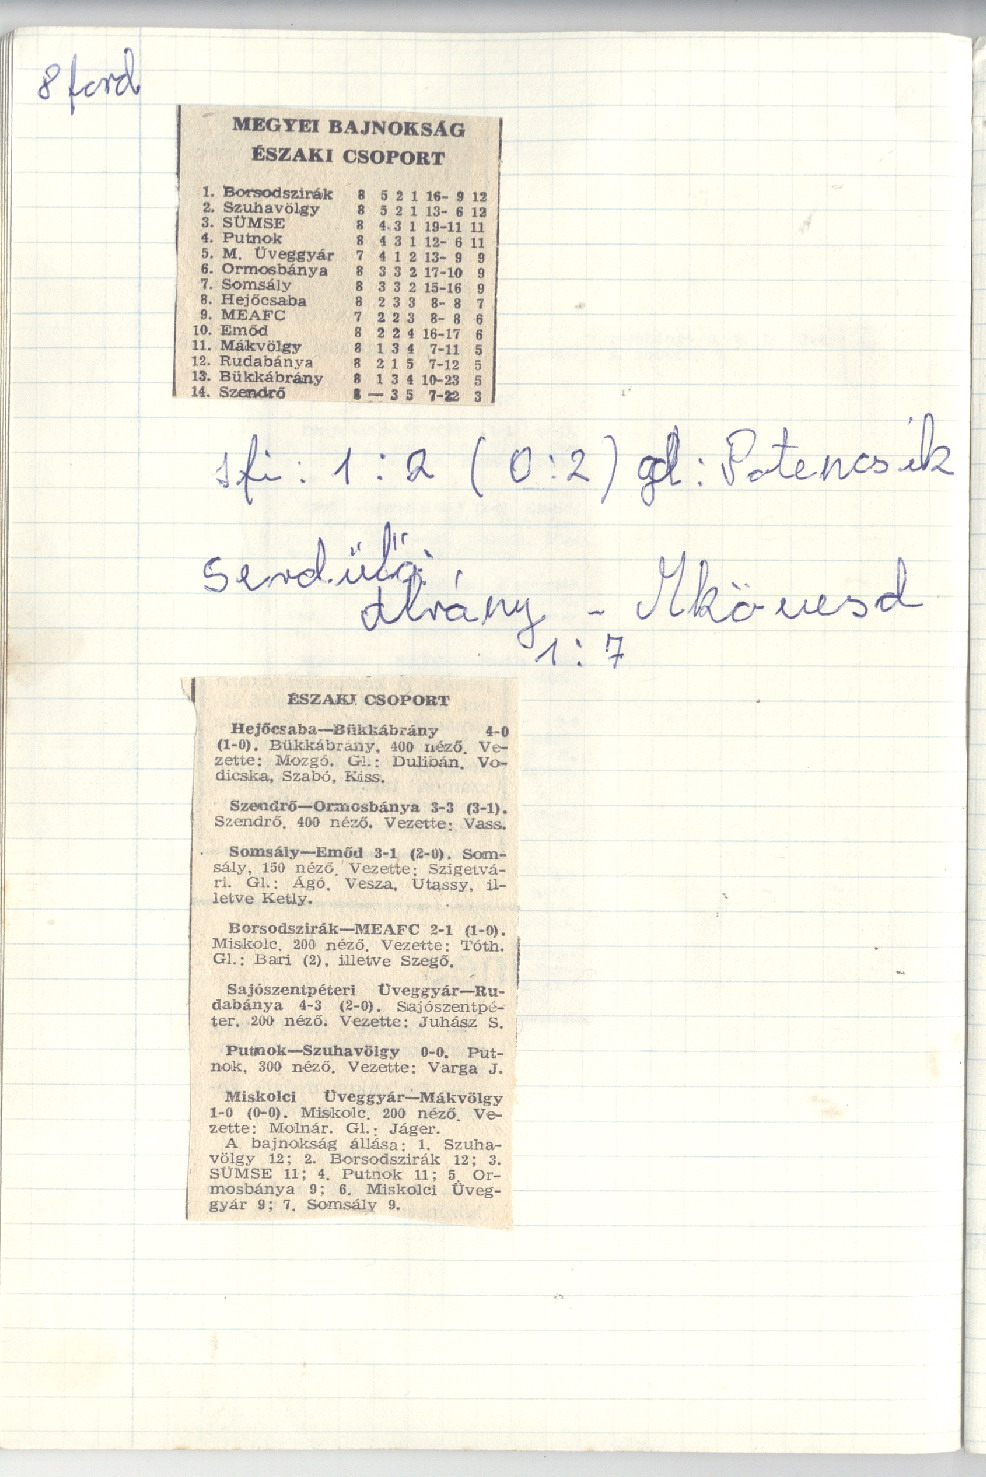 8 ford
MEGYEI BAJNOKSÁG
ÉSZAKI CSOPORT
1. Borsodszirák 8 5 2 1 16- 9 12
2. Szuhavölgy 8 5 2 1 13- 6 12
3. SÜMSE 8 4 3 1 19-11 11
4. Putnok 8 4 3 1 12- 6 11
5. M. Üveggyár 7 4 1 2 13- 9 9
6. Ormosbánya 8 3 3 2 17-10 9
7. Somsály 8 3 3 2 15-16 9
8. Hejőcsaba 8 2 3 3 8- 8 7
9. MEAFC 7 2 2 3 8- 8 6
10. Emőd 8 2 2 4 16-17 6
11. Mákvölgy 8 1 3 4 7-11 5
12. Rudabánya 8 2 1 5 7-12 5
13. Bükkábrány 8 1 3 4 10-23 5
14. Szendrő 8 — 3 5 7-22 3
ifi: 1:2 (0:2) gl: Potencsik
serdülő:
ábrány - Mkövesd
1:7
ÉSZAKI CSOPORT
Hejőcsaba—Bükkábrány 4-0
(1-0). Bükkábrány, 400 néző. Ve-
zette: Mozgó. Gl.: Dulibán, Vo-
dicska, Szabó, Kiss.
Szendrő—Ormosbánya 3-3 (3-1).
Szendrő, 400 néző. Vezette: Vass.
Somsály—Emőd 3-1 (2-0). Som-
sály, 150 néző. Vezette: Szigetvá-
ri. Gl.: Ágó, Vesza, Utassy, il-
letve Ketly.
Borsodszirák—MEAFC 2-1 (1-0).
Miskolc, 200 néző. Vezette: Tóth.
Gl.: Bari (2), illetve Szegő.
Sajószentpéteri Üveggyár—Ru-
dabánya 4-3 (2-0). Sajószentpé-
ter, 200 néző. Vezette: Juhász S.
Putnok—Szuhavölgy 0-0. Put-
nok, 300 néző. Vezette: Varga J.
Miskolci Üveggyár—Mákvölgy
1-0 (0-0). Miskolc, 200 néző. Ve-
zette: Molnár. Gl.: Jáger.
A bajnokság állása: 1. Szuha-
völgy 12; 2. Borsodszirák 12; 3.
SÜMSE 11; 4. Putnok 11; 5. Or-
mosbánya 9; 6. Miskolci Üveg-
gyár 9; 7. Somsály 9.